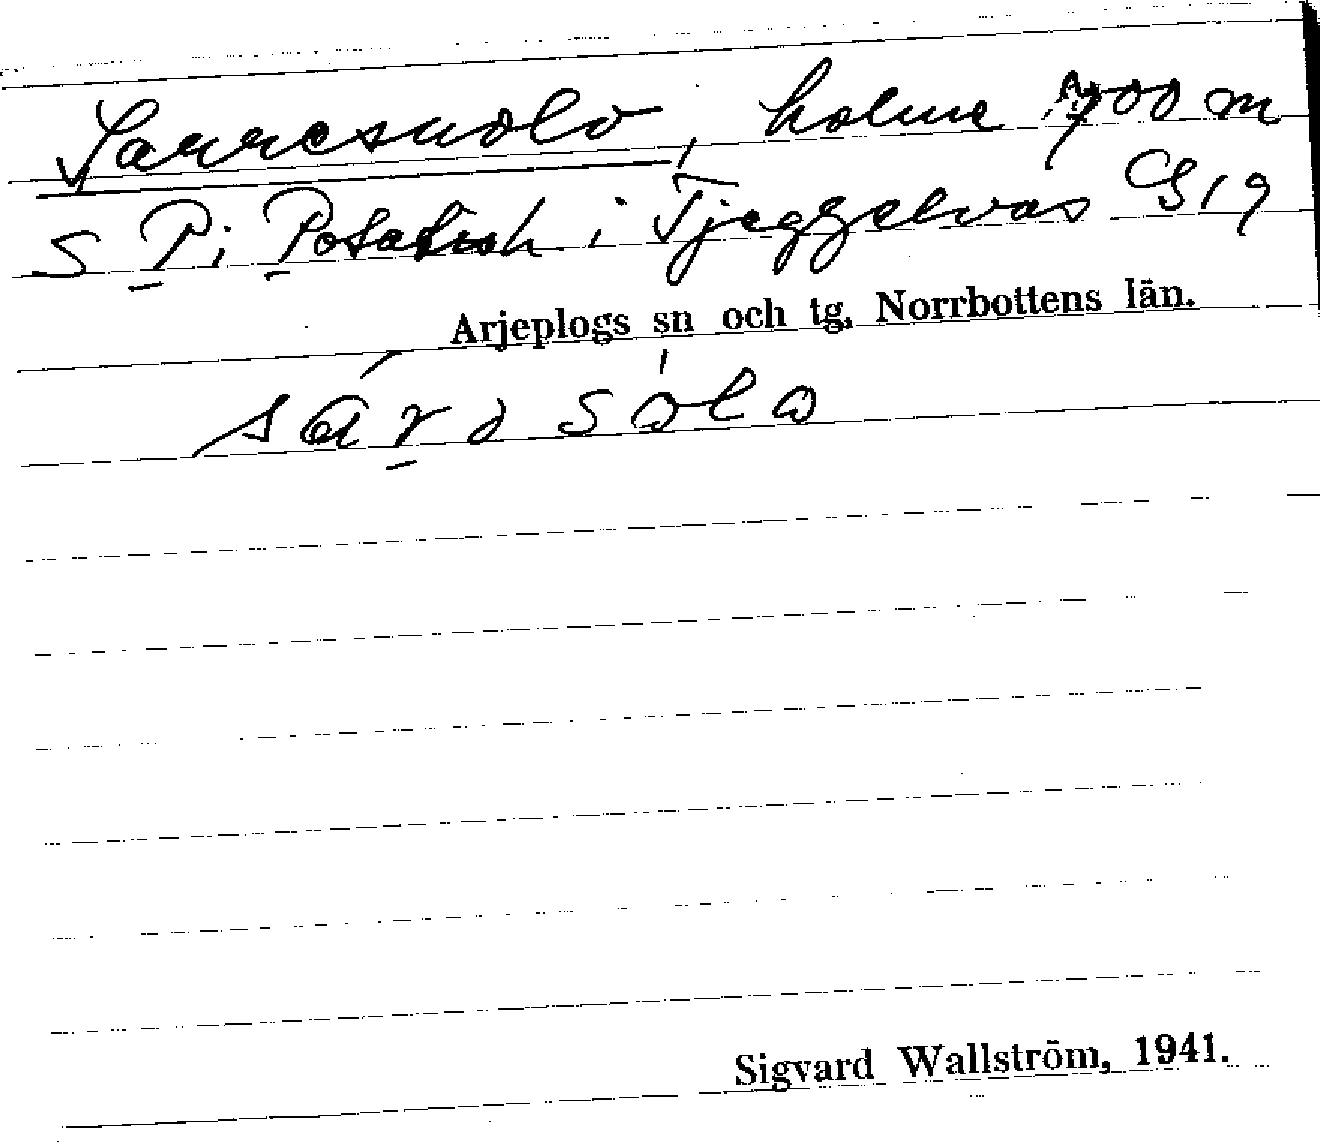 Sarresuolo, holme 700 m
S P i Potatisch i Tjeggelvas G19
Arjeplogs sn och tg, Norrbottens län.
sárəsòlɷ
Sigvard Wallström, 1941.